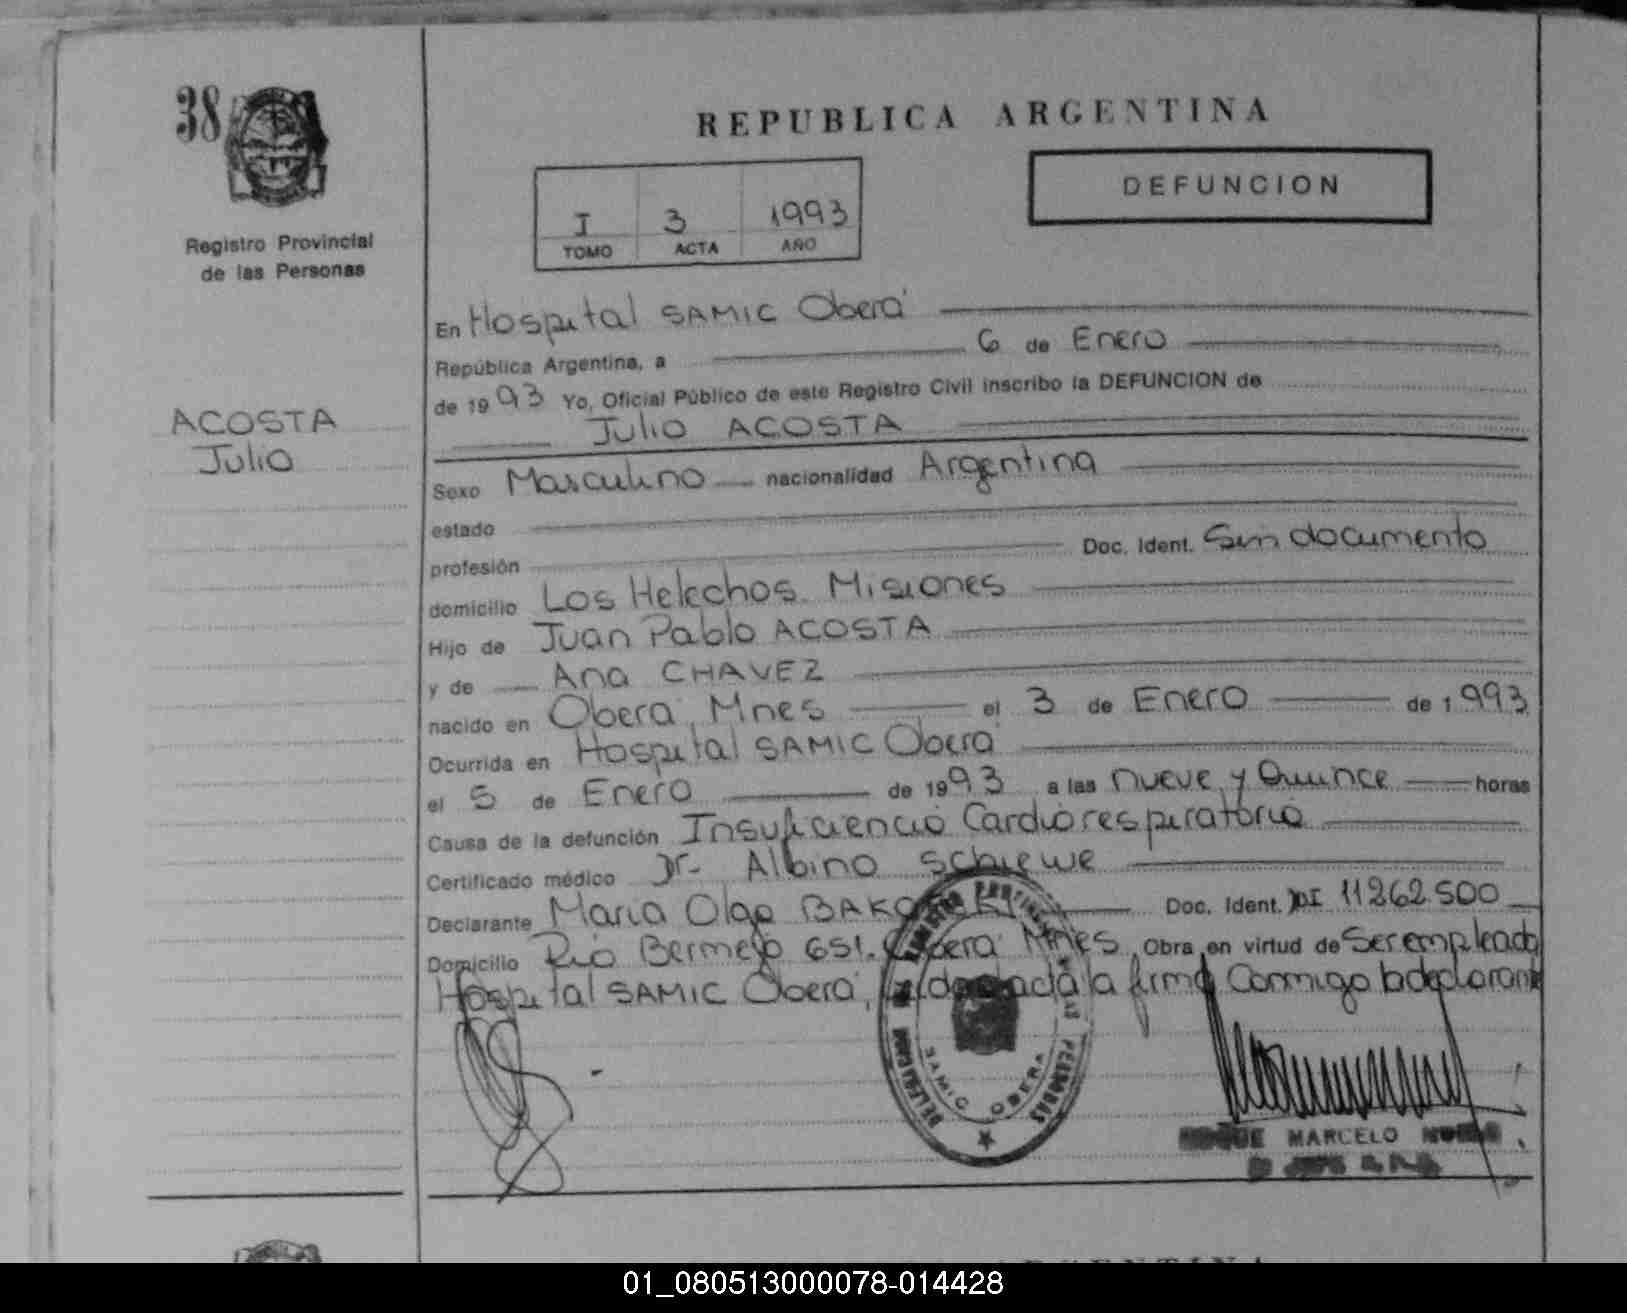 38
Registro Provincial
de las Personas
ACOSTA
Julio
REPUBLICA ARGENTINA
DEFUNCION
I 3 1993
TOMO ACTA AÑO
En Hospital SAMIC Oberá
República Argentina, a 6 de Enero
de 1993 Yo, Oficial Público de este Registro Civil inscribo la DEFUNCION de
Julio ACOSTA
Sexo Masculino nacionalidad Argentina
estado
profesión Doc. Ident. Sin documento
domicilio Los Helechos. Misiones
Hijo de Juan Pablo ACOSTA
y de Ana CHAVEZ
nacido en Oberá, Mnes el 3 de Enero de 1993
Ocurrida en Hospital SAMIC Oberá
el 5 de Enero de 1993 a las nueve y Quince horas
Causa de la defunción Insuficiencia Cardiorespiratoria
Certificado médico Dr. Albino Schiewe
Declarante Maria Olga Doc. Ident. DI 11262.500
Domicilio Rio Bermejo 651. Oberá Mnes Obra en virtud de Ser empleada
Hospital SAMIC Oberá, la firma Conmigo la declarante
SAMIC OBERA
MARCELO
01_080513000078-014428